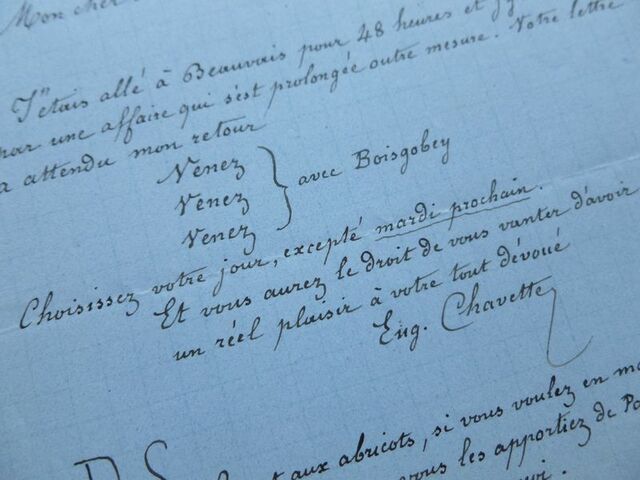 Mon cher
J'étais allé à Beauvais pour 48 heures et j'y
par une affaire qui s'est prolongée outre mesure. Votre lettre
a attendu mon retour
Venez
Venez } avec Boisgobey
Venez
Choisissez votre jour, excepté mardi prochain.
Et vous aurez le droit de vous vanter d'avoir
un réel plaisir à votre tout dévoué
Eug. Chavette
aux abricots, si vous voulez en
vous les apportiez de